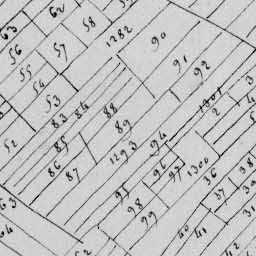 62
63
58
1282
90
56
57
91
55
92
54
53
88
1301
2
83 84
89
52
85
94
1293
86
87
96
1300
97
36
38
37
39
95
98
31
63
99
64
40
41
42